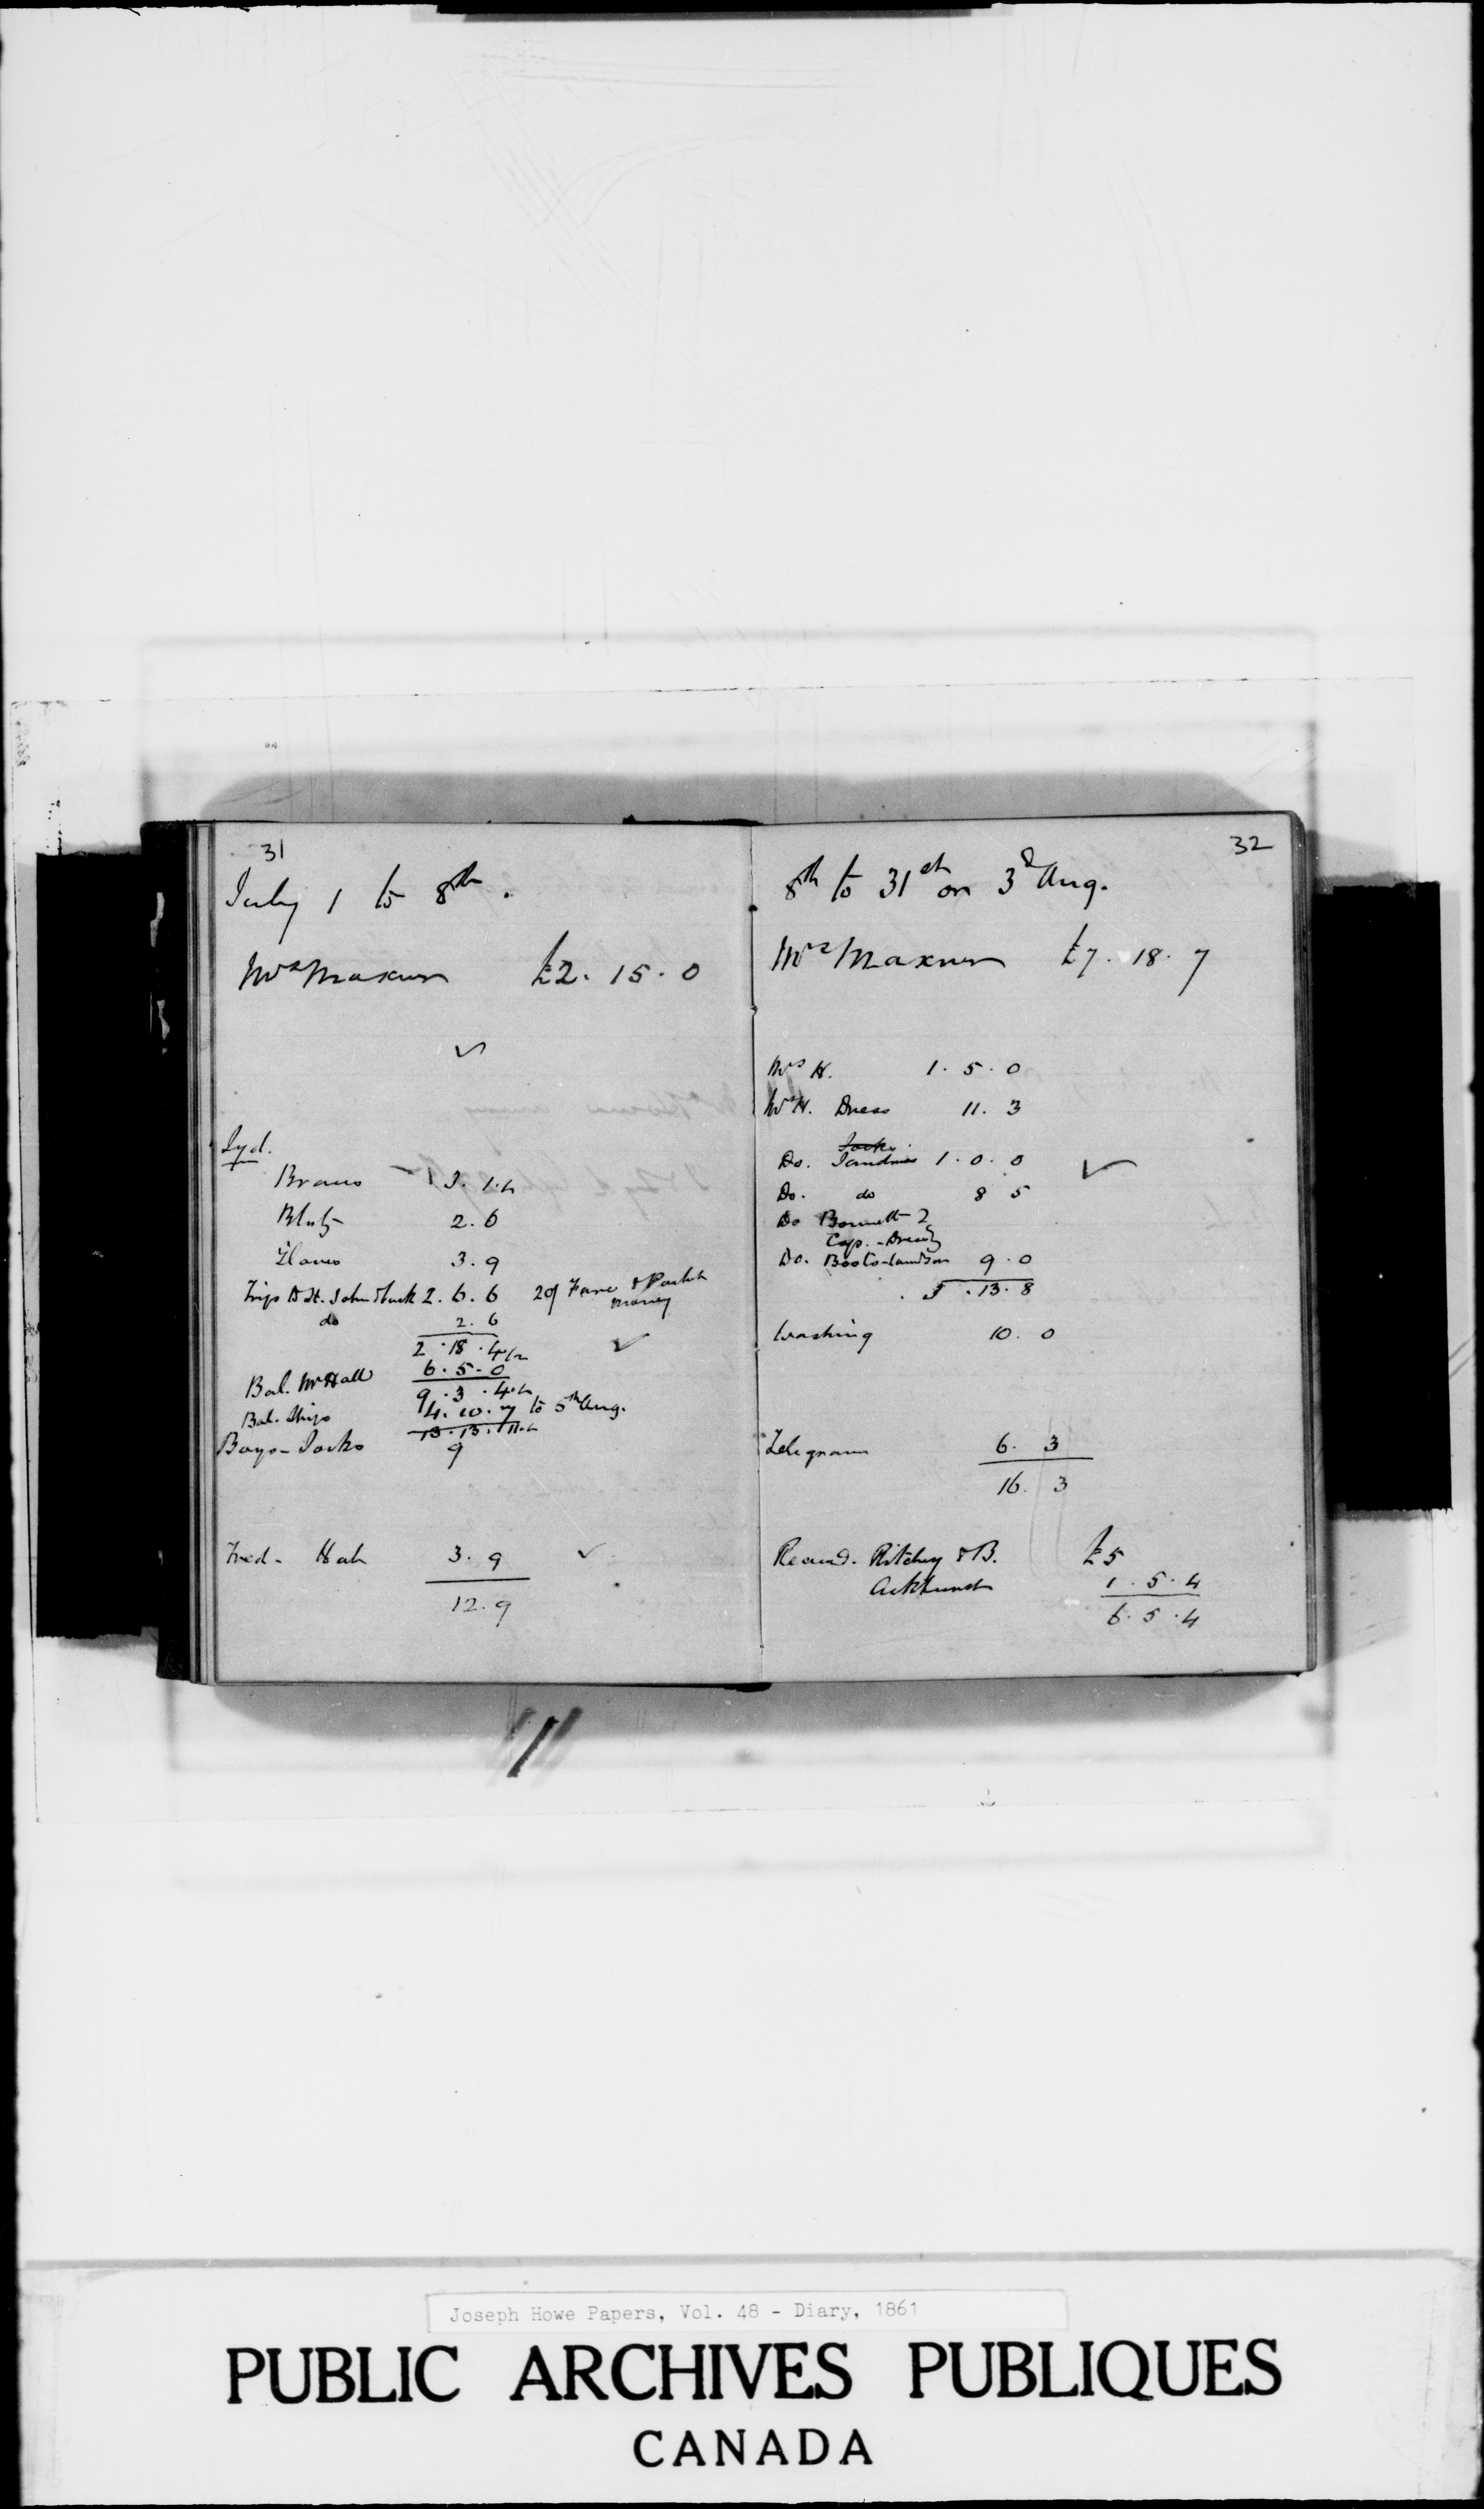 31
July 1 to 8th.
Mrs Maxner £2. 15. 0
Syd.
3. 1.
2. 6
3. 9
Trip to St. John 2. 6. 6 Fare &
money
do 2. 6
2. 18. 4 1/2
Bal. Mr Hall 6. 5. 0
9. 3. 4 1/2
Bal. 4. 10. 7 to 5th Aug.
13. 13. 11 1/2
Boys - Socks 9
Fred - Hat 3. 9
12. 9
32
8th to 31st or 3d Aug.
Mrs Maxner £7. 18. 7
Mrs H. 1. 5. 0
Mrs H. Dress 11. 3
Socks
Do. Sundries 1. 0. 0
Do. do 8 5
Do Bonnett
Cap.
Do. Boots 9. 0
13. 8
Washing 10. 0
Telegram 6. 3
16. 3
Recavd. Ritchey & B. £5
Ackhurst 1. 5. 4
6. 5. 4
Joseph Howe Papers, Vol. 48 - Diary, 1861
PUBLIC ARCHIVES PUBLIQUES
CANADA